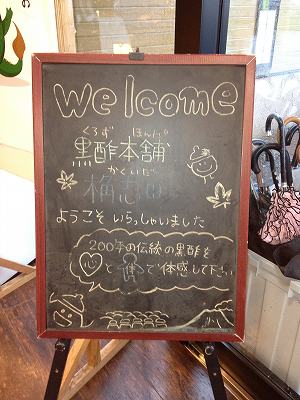 Welcome
くろず ほんぽ
黒酢本舗
かくいだ
桷志田
ようこそ いらっしゃいました
200年の伝統の黒酢を
心と体で体感して下さい